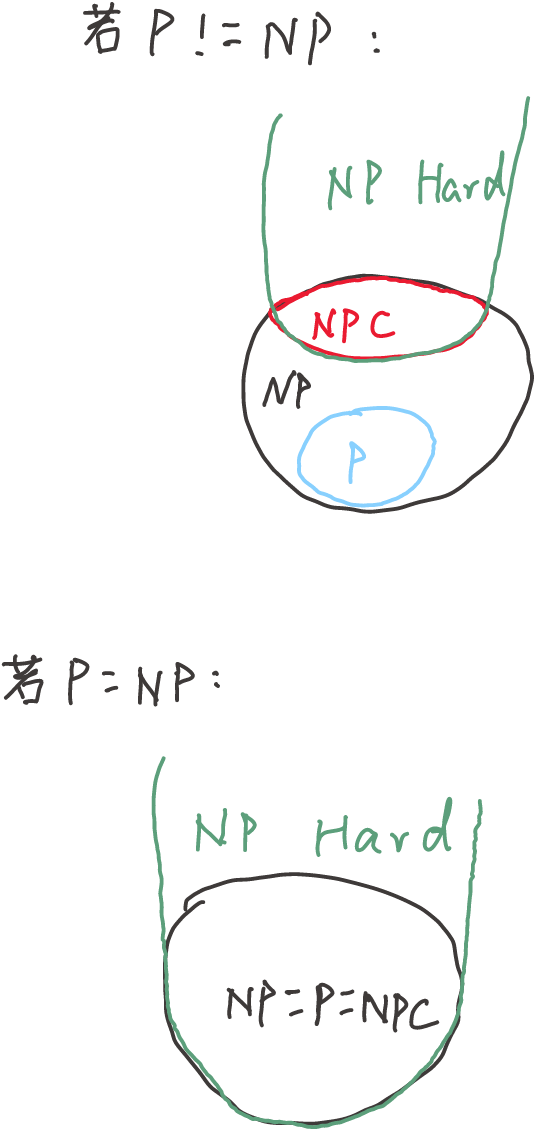 若 P != NP :
NP Hard
NPC
NP
P
若 P = NP :
NP Hard
NP=P=NPC